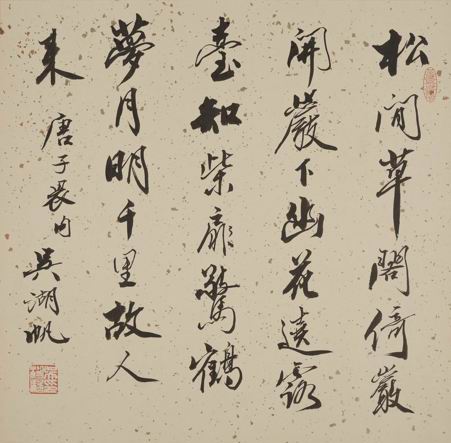 松間草閣倚巖
開巖下幽花遶露
臺知柴扉驚鶴
夢月明千里故人
來
唐子畏句
吳湖帆